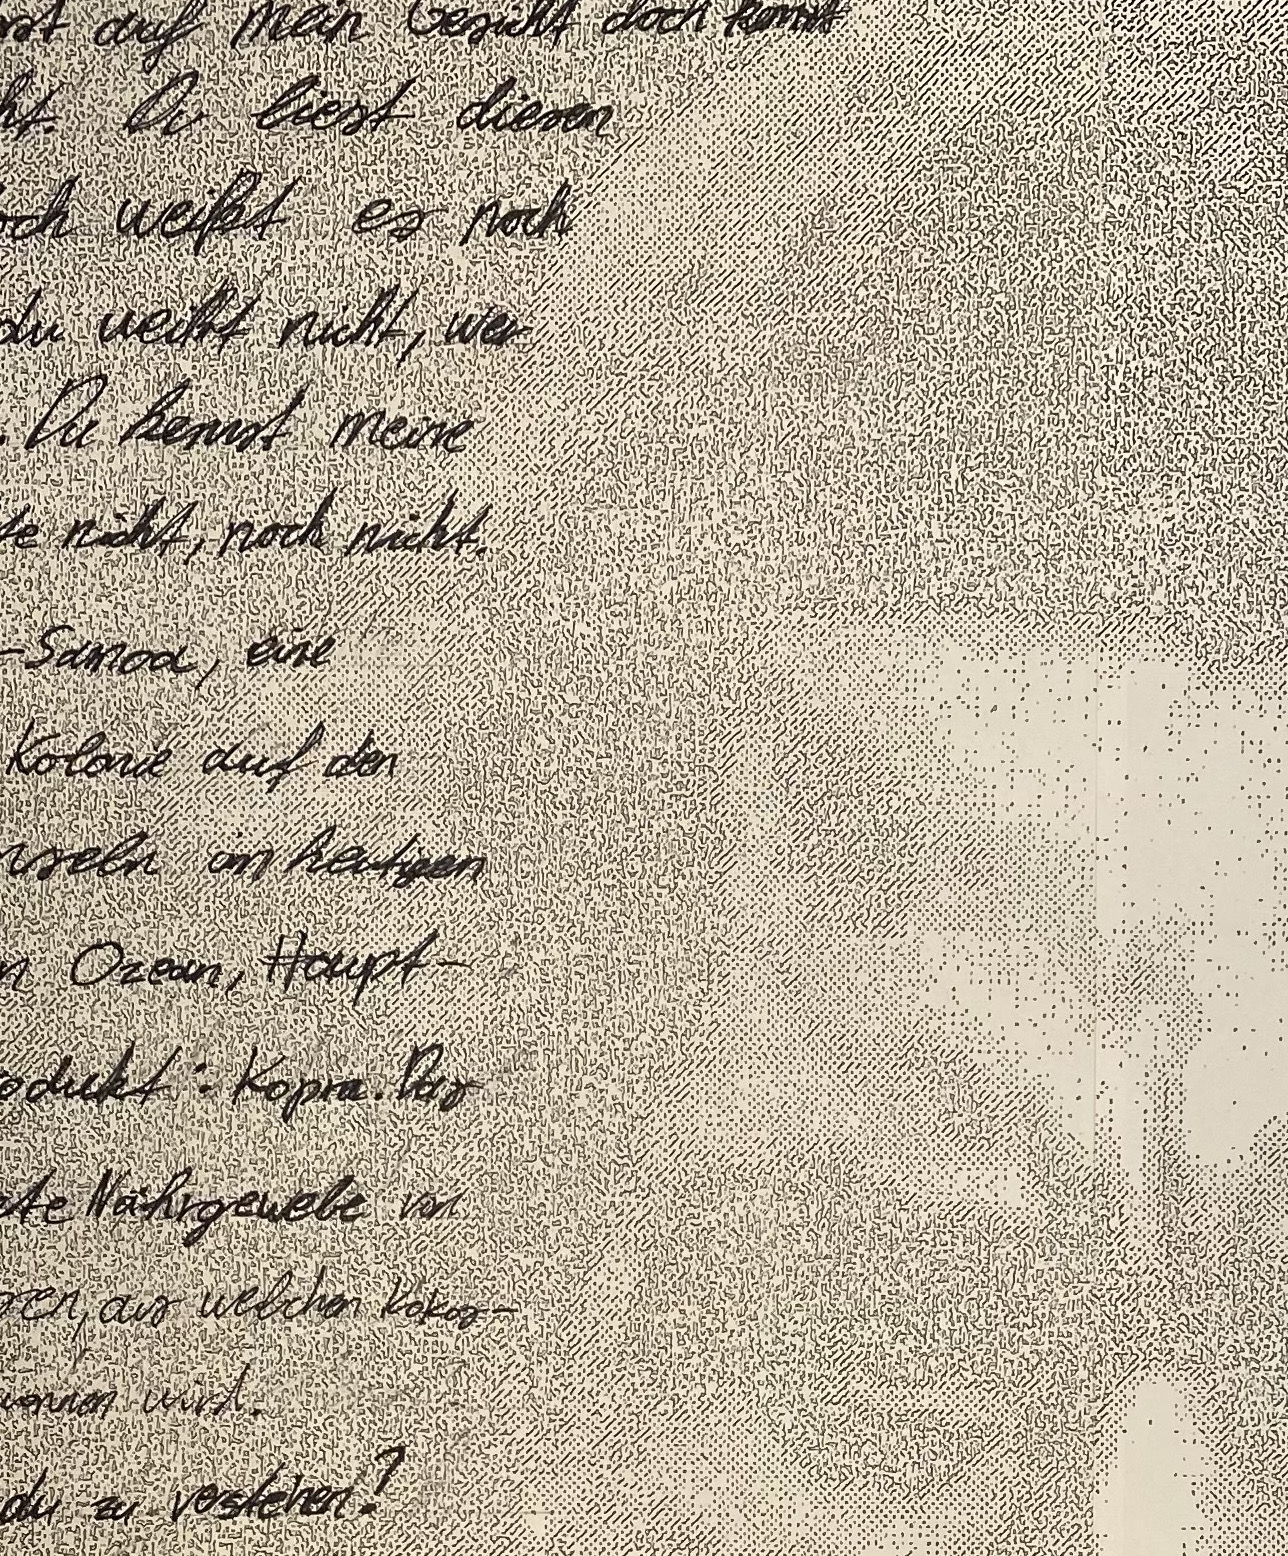 st auf mein Gesicht doch kennst
ht. Du liest diesen
och weißt es noch
du weißt nicht, wer
. Du kennst meine
te nicht, noch nicht.
-Samoa, eine
Kolonie auf den
nseln im heutigen
n Ozean, Haupt-
odukt: Kopra. Das
te Nährgewebe von
en, aus welchen Kokos-
wonnen wird.
du zu verstehen?